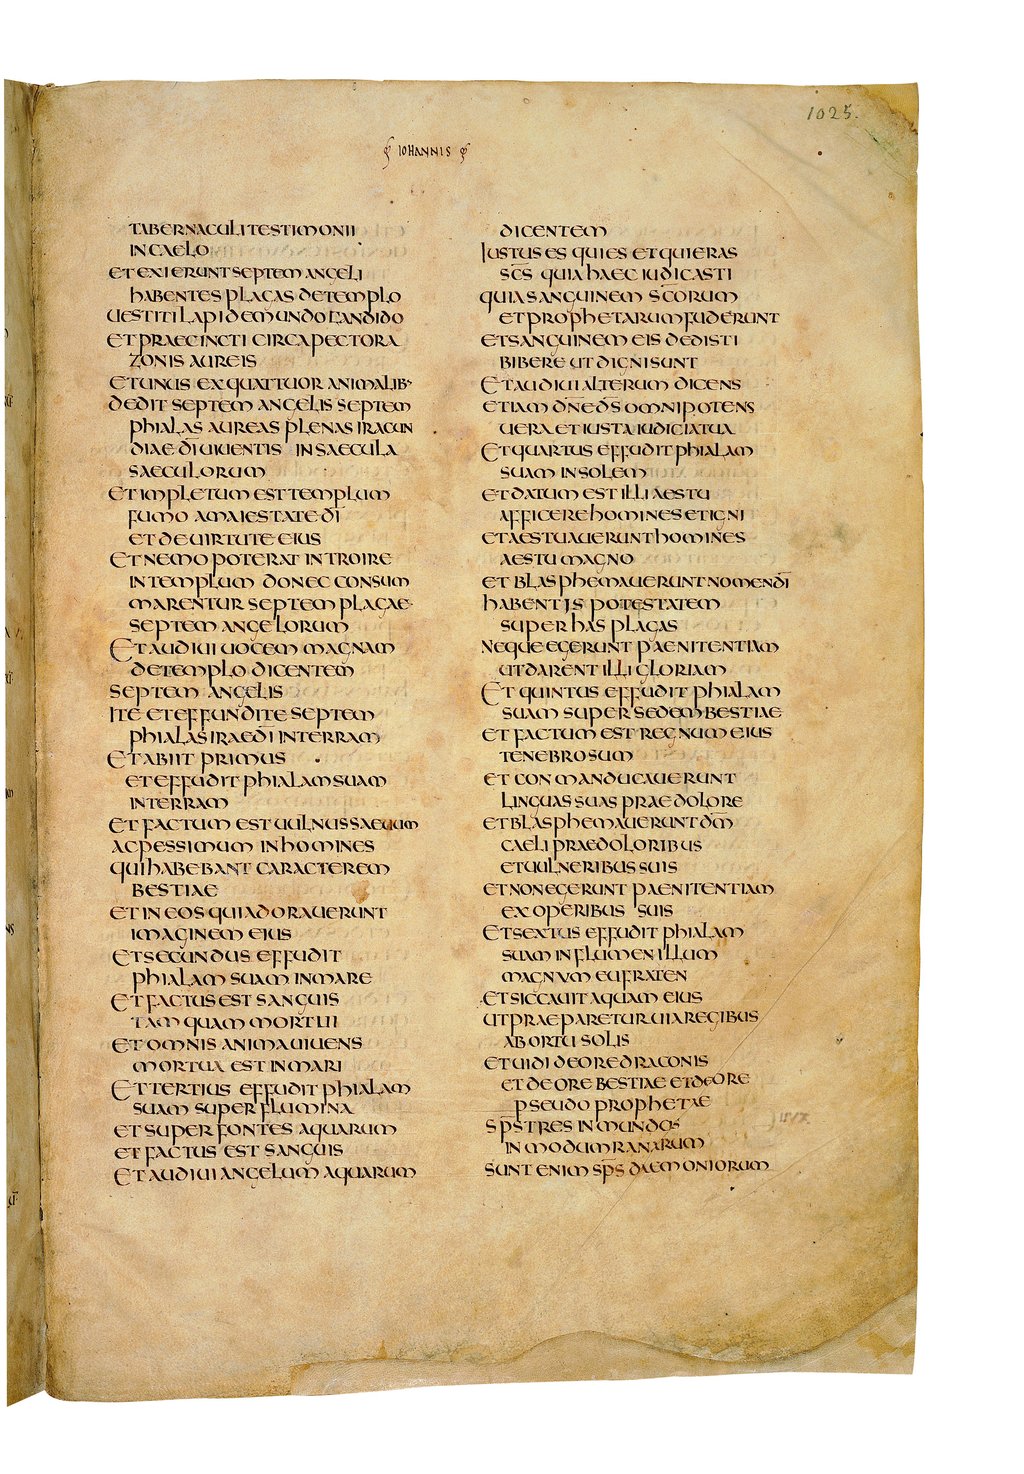 1025.
IOHANNIS
TABERNACULI TESTIMONII
IN CAELO
ET EXIERUNT SEPTEM ANGELI
HABENTES PLAGAS DE TEMPLO
UESTITI LAPIDE MUNDO CANDIDO
ET PRAECINCTI CIRCA PECTORA
ZONIS AUREIS
ET UNUS EX QUATTUOR ANIMALIB·
DEDIT SEPTEM ANGELIS SEPTEM
PHIALAS AUREAS PLENAS IRACUN
DIAE D̅I UIUENTIS IN SAECULA
SAECULORUM
ET IMPLETUM EST TEMPLUM
FUMO A MAIESTATE D̅I
ET DE UIRTUTE EIUS
ET NEMO POTERAT INTROIRE
IN TEMPLUM DONEC CONSUM
MARENTUR SEPTEM PLAGAE
SEPTEM ANGELORUM
ET AUDIUI UOCEM MAGNAM
DE TEMPLO DICENTEM
SEPTEM ANGELIS
ITE ET EFFUNDITE SEPTEM
PHIALAS IRAE D̅I IN TERRAM
ET ABIIT PRIMUS
ET EFFUDIT PHIALAM SUAM
IN TERRAM
ET FACTUM EST UULNUS SAEUUM
AC PESSIMUM IN HOMINES
QUI HABEBANT CARACTEREM
BESTIAE
ET IN EOS QUI ADORAUERUNT
IMAGINEM EIUS
ET SECUNDUS EFFUDIT
PHIALAM SUAM IN MARE
ET FACTUS EST SANGUIS
TAMQUAM MORTUI
ET OMNIS ANIMA UIUENS
MORTUA EST IN MARI
ET TERTIUS EFFUDIT PHIALAM
SUAM SUPER FLUMINA
ET SUPER FONTES AQUARUM
ET FACTUS EST SANGUIS
ET AUDIUI ANGELUM AQUARUM
DICENTEM
IUSTUS ES QUI ES ET QUI ERAS
SC̅S QUIA HAEC IUDICASTI
QUIA SANGUINEM SC̅ORUM
ET PROPHETARUM FUDERUNT
ET SANGUINEM EIS DEDISTI
BIBERE UT DIGNI SUNT
ET AUDIUI ALTERUM DICENS
ETIAM D̅N̅E D̅S OMNIPOTENS
UERA ET IUSTA IUDICIA TUA
ET QUARTUS EFFUDIT PHIALAM
SUAM IN SOLEM
ET DATUM EST ILLI AESTU
AFFICERE HOMINES ET IGNI
ET AESTUAUERUNT HOMINES
AESTU MAGNO
ET BLASPHEMAUERUNT NOMEN D̅I
HABENTIS POTESTATEM
SUPER HAS PLAGAS
NEQUE EGERUNT PAENITENTIAM
UT DARENT ILLI GLORIAM
ET QUINTUS EFFUDIT PHIALAM
SUAM SUPER SEDEM BESTIAE
ET FACTUM EST REGNUM EIUS
TENEBROSUM
ET CONMANDUCAUERUNT
LINGUAS SUAS PRAE DOLORE
ET BLASPHEMAUERUNT D̅M
CAELI PRAE DOLORIBUS
ET UULNERIBUS SUIS
ET NON EGERUNT PAENITENTIAM
EX OPERIBUS SUIS
ET SEXTUS EFFUDIT PHIALAM
SUAM IN FLUMEN ILLUM
MAGNUM EUFRATEN
ET SICCAUIT AQUAM EIUS
UT PRAEPARETUR UIA REGIBUS
AB ORTU SOLIS
ET UIDI DE ORE DRACONIS
ET DE ORE BESTIAE ET DE ORE
PSEUDOPROPHETAE
SP̅S TRES INMUNDOS
IN MODUM RANARUM
SUNT ENIM SP̅S DAEMONIORUM